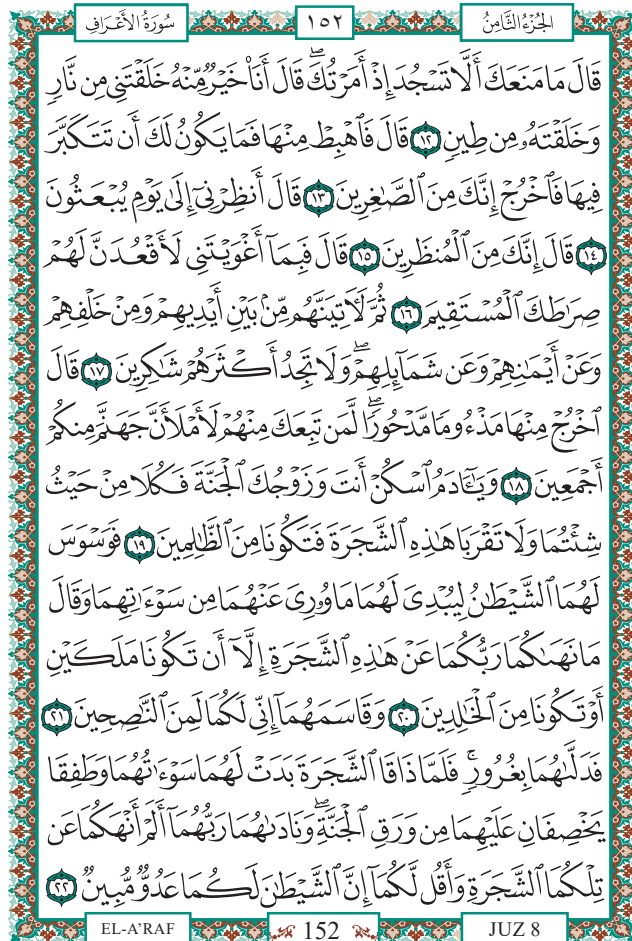 سُورَةُ الأَعْرَافِ ١٥٢ الجُزْءُ الثَّامِنُ
قَالَ مَا مَنَعَكَ أَلَّا تَسْجُدَ إِذْ أَمَرْتُكَۖ قَالَ أَنَا۠ خَيْرٌ مِّنْهُ خَلَقْتَنِى مِن نَّارٍ
وَخَلَقْتَهُۥ مِن طِينٍ ١٢ قَالَ فَٱهْبِطْ مِنْهَا فَمَا يَكُونُ لَكَ أَن تَتَكَبَّرَ
فِيهَا فَٱخْرُجْ إِنَّكَ مِنَ ٱلصَّٰغِرِينَ ١٣ قَالَ أَنظِرْنِىٓ إِلَىٰ يَوْمِ يُبْعَثُونَ
١٤ قَالَ إِنَّكَ مِنَ ٱلْمُنظَرِينَ ١٥ قَالَ فَبِمَآ أَغْوَيْتَنِى لَأَقْعُدَنَّ لَهُمْ
صِرَٰطَكَ ٱلْمُسْتَقِيمَ ١٦ ثُمَّ لَءَاتِيَنَّهُم مِّنۢ بَيْنِ أَيْدِيهِمْ وَمِنْ خَلْفِهِمْ
وَعَنْ أَيْمَٰنِهِمْ وَعَن شَمَآئِلِهِمْۖ وَلَا تَجِدُ أَكْثَرَهُمْ شَٰكِرِينَ ١٧ قَالَ
ٱخْرُجْ مِنْهَا مَذْءُومًا مَّدْحُورًاۖ لَّمَن تَبِعَكَ مِنْهُمْ لَأَمْلَأَنَّ جَهَنَّمَ مِنكُمْ
أَجْمَعِينَ ١٨ وَيَٰٓـَٔادَمُ ٱسْكُنْ أَنتَ وَزَوْجُكَ ٱلْجَنَّةَ فَكُلَا مِنْ حَيْثُ
شِئْتُمَا وَلَا تَقْرَبَا هَٰذِهِ ٱلشَّجَرَةَ فَتَكُونَا مِنَ ٱلظَّٰلِمِينَ ١٩ فَوَسْوَسَ
لَهُمَا ٱلشَّيْطَٰنُ لِيُبْدِىَ لَهُمَا مَا وُۥرِىَ عَنْهُمَا مِن سَوْءَٰتِهِمَا وَقَالَ
مَا نَهَىٰكُمَا رَبُّكُمَا عَنْ هَٰذِهِ ٱلشَّجَرَةِ إِلَّآ أَن تَكُونَا مَلَكَيْنِ
أَوْ تَكُونَا مِنَ ٱلْخَٰلِدِينَ ٢٠ وَقَاسَمَهُمَآ إِنِّى لَكُمَا لَمِنَ ٱلنَّٰصِحِينَ ٢١
فَدَلَّىٰهُمَا بِغُرُورٍۚ فَلَمَّا ذَاقَا ٱلشَّجَرَةَ بَدَتْ لَهُمَا سَوْءَٰتُهُمَا وَطَفِقَا
يَخْصِفَانِ عَلَيْهِمَا مِن وَرَقِ ٱلْجَنَّةِۖ وَنَادَىٰهُمَا رَبُّهُمَآ أَلَمْ أَنْهَكُمَا عَن
تِلْكُمَا ٱلشَّجَرَةِ وَأَقُل لَّكُمَآ إِنَّ ٱلشَّيْطَٰنَ لَكُمَا عَدُوٌّ مُّبِينٌ ٢٢
EL-A'RAF 152 JUZ 8